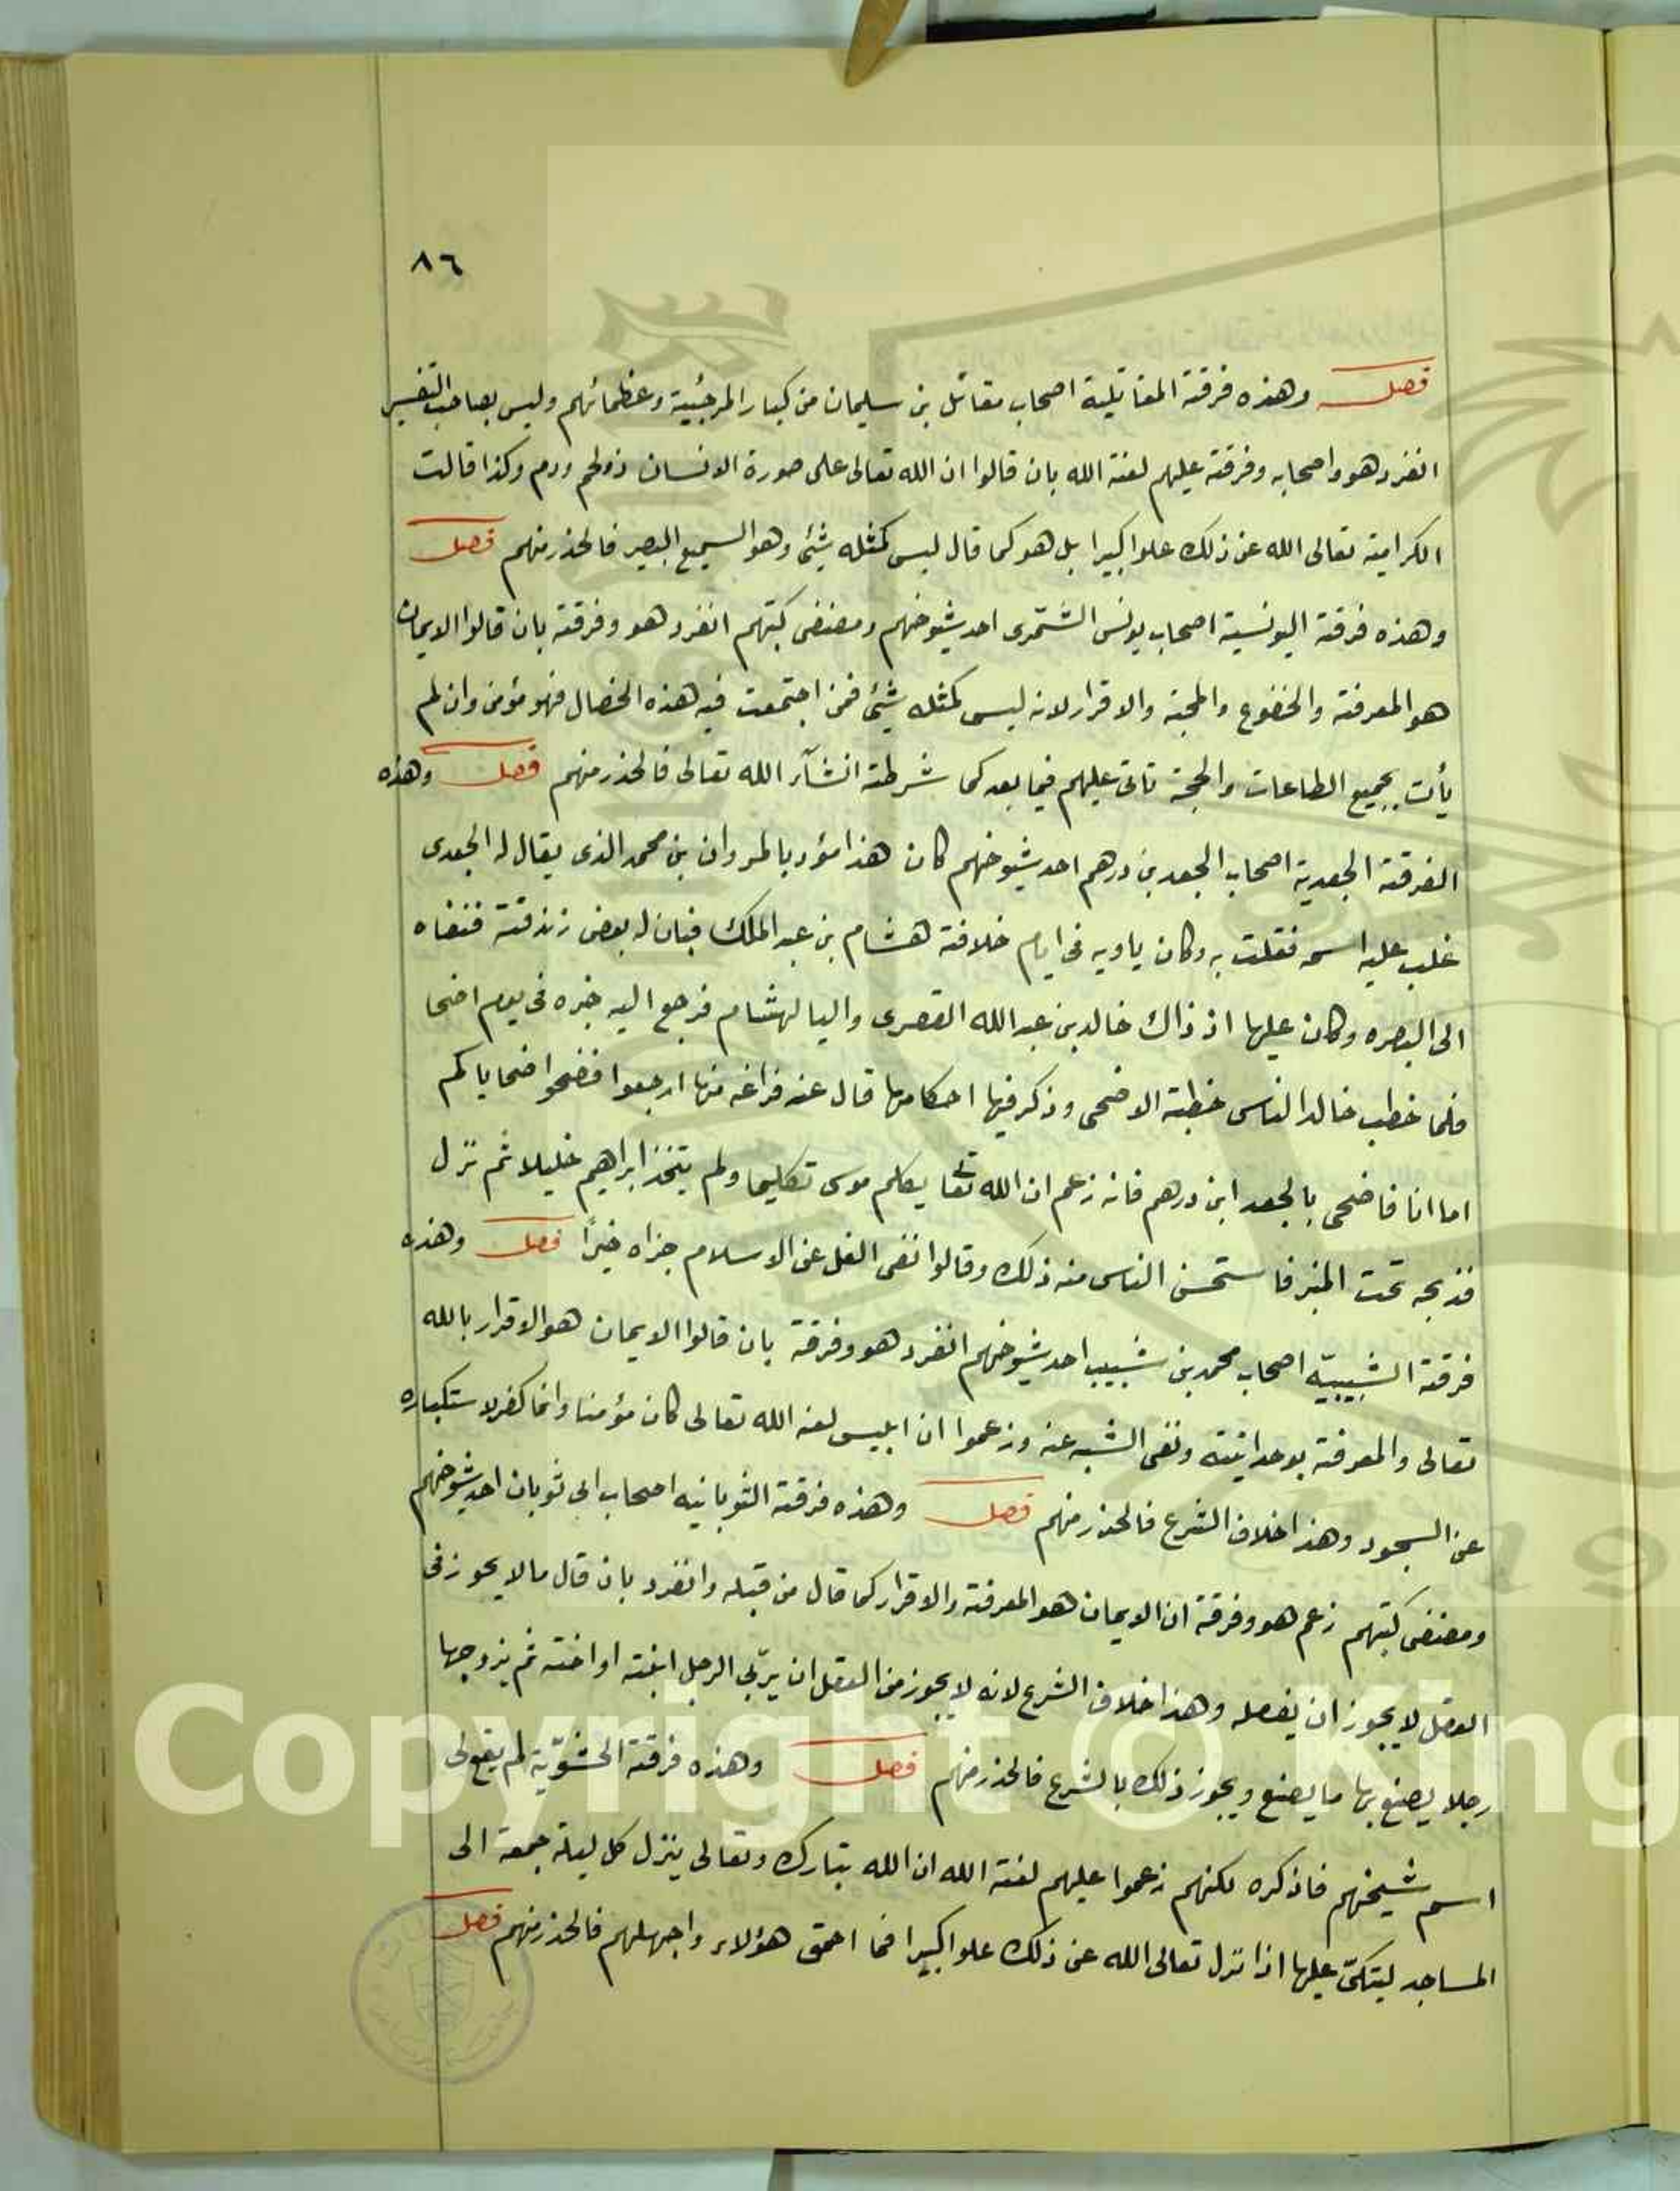 ٨٦
فصل وهذه فرقة المقاتلية اصحاب مقاتل بن سليمان من كبار المرجئية وعظمائهم وليس بصاحب التفسير
انفرد هو واصحابه وفرقته عليهم لعنة الله بان قالوا ان الله تعالى على صورة الانسان ذو لحم ودم وكذا قالت
الكرامية تعالى الله عن ذلك علوا كبيرا بل هو كما قال ليس كمثله شئ وهو السميع البصير فالحذر منهم فصل
وهذه فرقة اليونسية اصحاب يونس الشمرى احد شيوخهم ومصنفى كتبهم انفرد هو وفرقته بان قالوا الايمان
هو المعرفة والخضوع والمحبة والاقرار لانه ليس كمثله شئ فمن اجتمعت فيه هذه الخصال فهو مؤمن وان لم
يأت بجميع الطاعات والحجة تاتى عليهم فيما بعد كما شرطته انشآء الله تعالى فالحذر منهم فصل وهذه
الفرقة الجعدية اصحاب الجعد بن درهم احد شيوخهم كان هذا مؤدبا لمروان بن محمد الذى يقال له الجعدى
غلب عليه اسمه فقلت به وكان ياويه فى ايام خلافة هشام بن عبد الملك فبان له بعض زندقته فنفاه
الى البصره وكان عليها اذ ذاك خالد بن عبد الله القصرى واليا لهشام فرجع اليه خبره فى يوم اضحا
فلما خطب خالد الناس خطبة الاضحى وذكر فيها احكامها قال عند فراغه منها ارجعوا فضحوا ضحاياكم
اما انا فاضحى بالجعد ابن درهم فانه زعم ان الله تعا يكلم موسى تكليما ولم يتخذ ابراهيم خليلا ثم نزل
فذبحه تحت المنبر فاستحسن الناس منه ذلك وقالوا نفى الغل عن الاسلام جزاه خيرًا فصل وهذه
فرقة الشبيبيّه اصحاب محمد بن شبيب احد شيوخهم انفرد هو وفرقة بان قالوا الايمان هو الاقرار بالله
تعالى والمعرفة بوحدانيته ونفى الشبه عنه وزعموا ان ابليس لعنه الله تعالى كان مؤمنا وانما كفر لاستكباره
عن السجود وهذا خلاف الشرع فالحذر منهم فصل وهذه فرقة الثوبانيه اصحاب ابى ثوبان احد شيوخهم
ومصنفى كتبهم زعم هو وفرقة ان الايمان هو المعرفة والاقرار كما قال من قبله وانفرد بان قال ما لا يجوز فى
العقل لا يجوز ان يفعله وهذا خلاف الشرع لانه لا يجوز من العقل ان يربّى الرجل ابنته او اخته ثم يزوجها
رجلا يصنع بها ما يصنع ويجوز ذلك بالشرع فالحذر منهم فصل وهذه فرقة الحشويّة لم يقع لى
اسم شيخهم فاذكره لكنهم زعموا عليهم لعنة الله ان الله تبارك وتعالى ينزل كل ليلة جمعة الى
المساجد ليتكئ عليها اذا نزل تعالى الله عن ذلك علوا كبيرا فما احمق هؤلاء واجهلهم فالحذر منهم فصل
Copyright © King